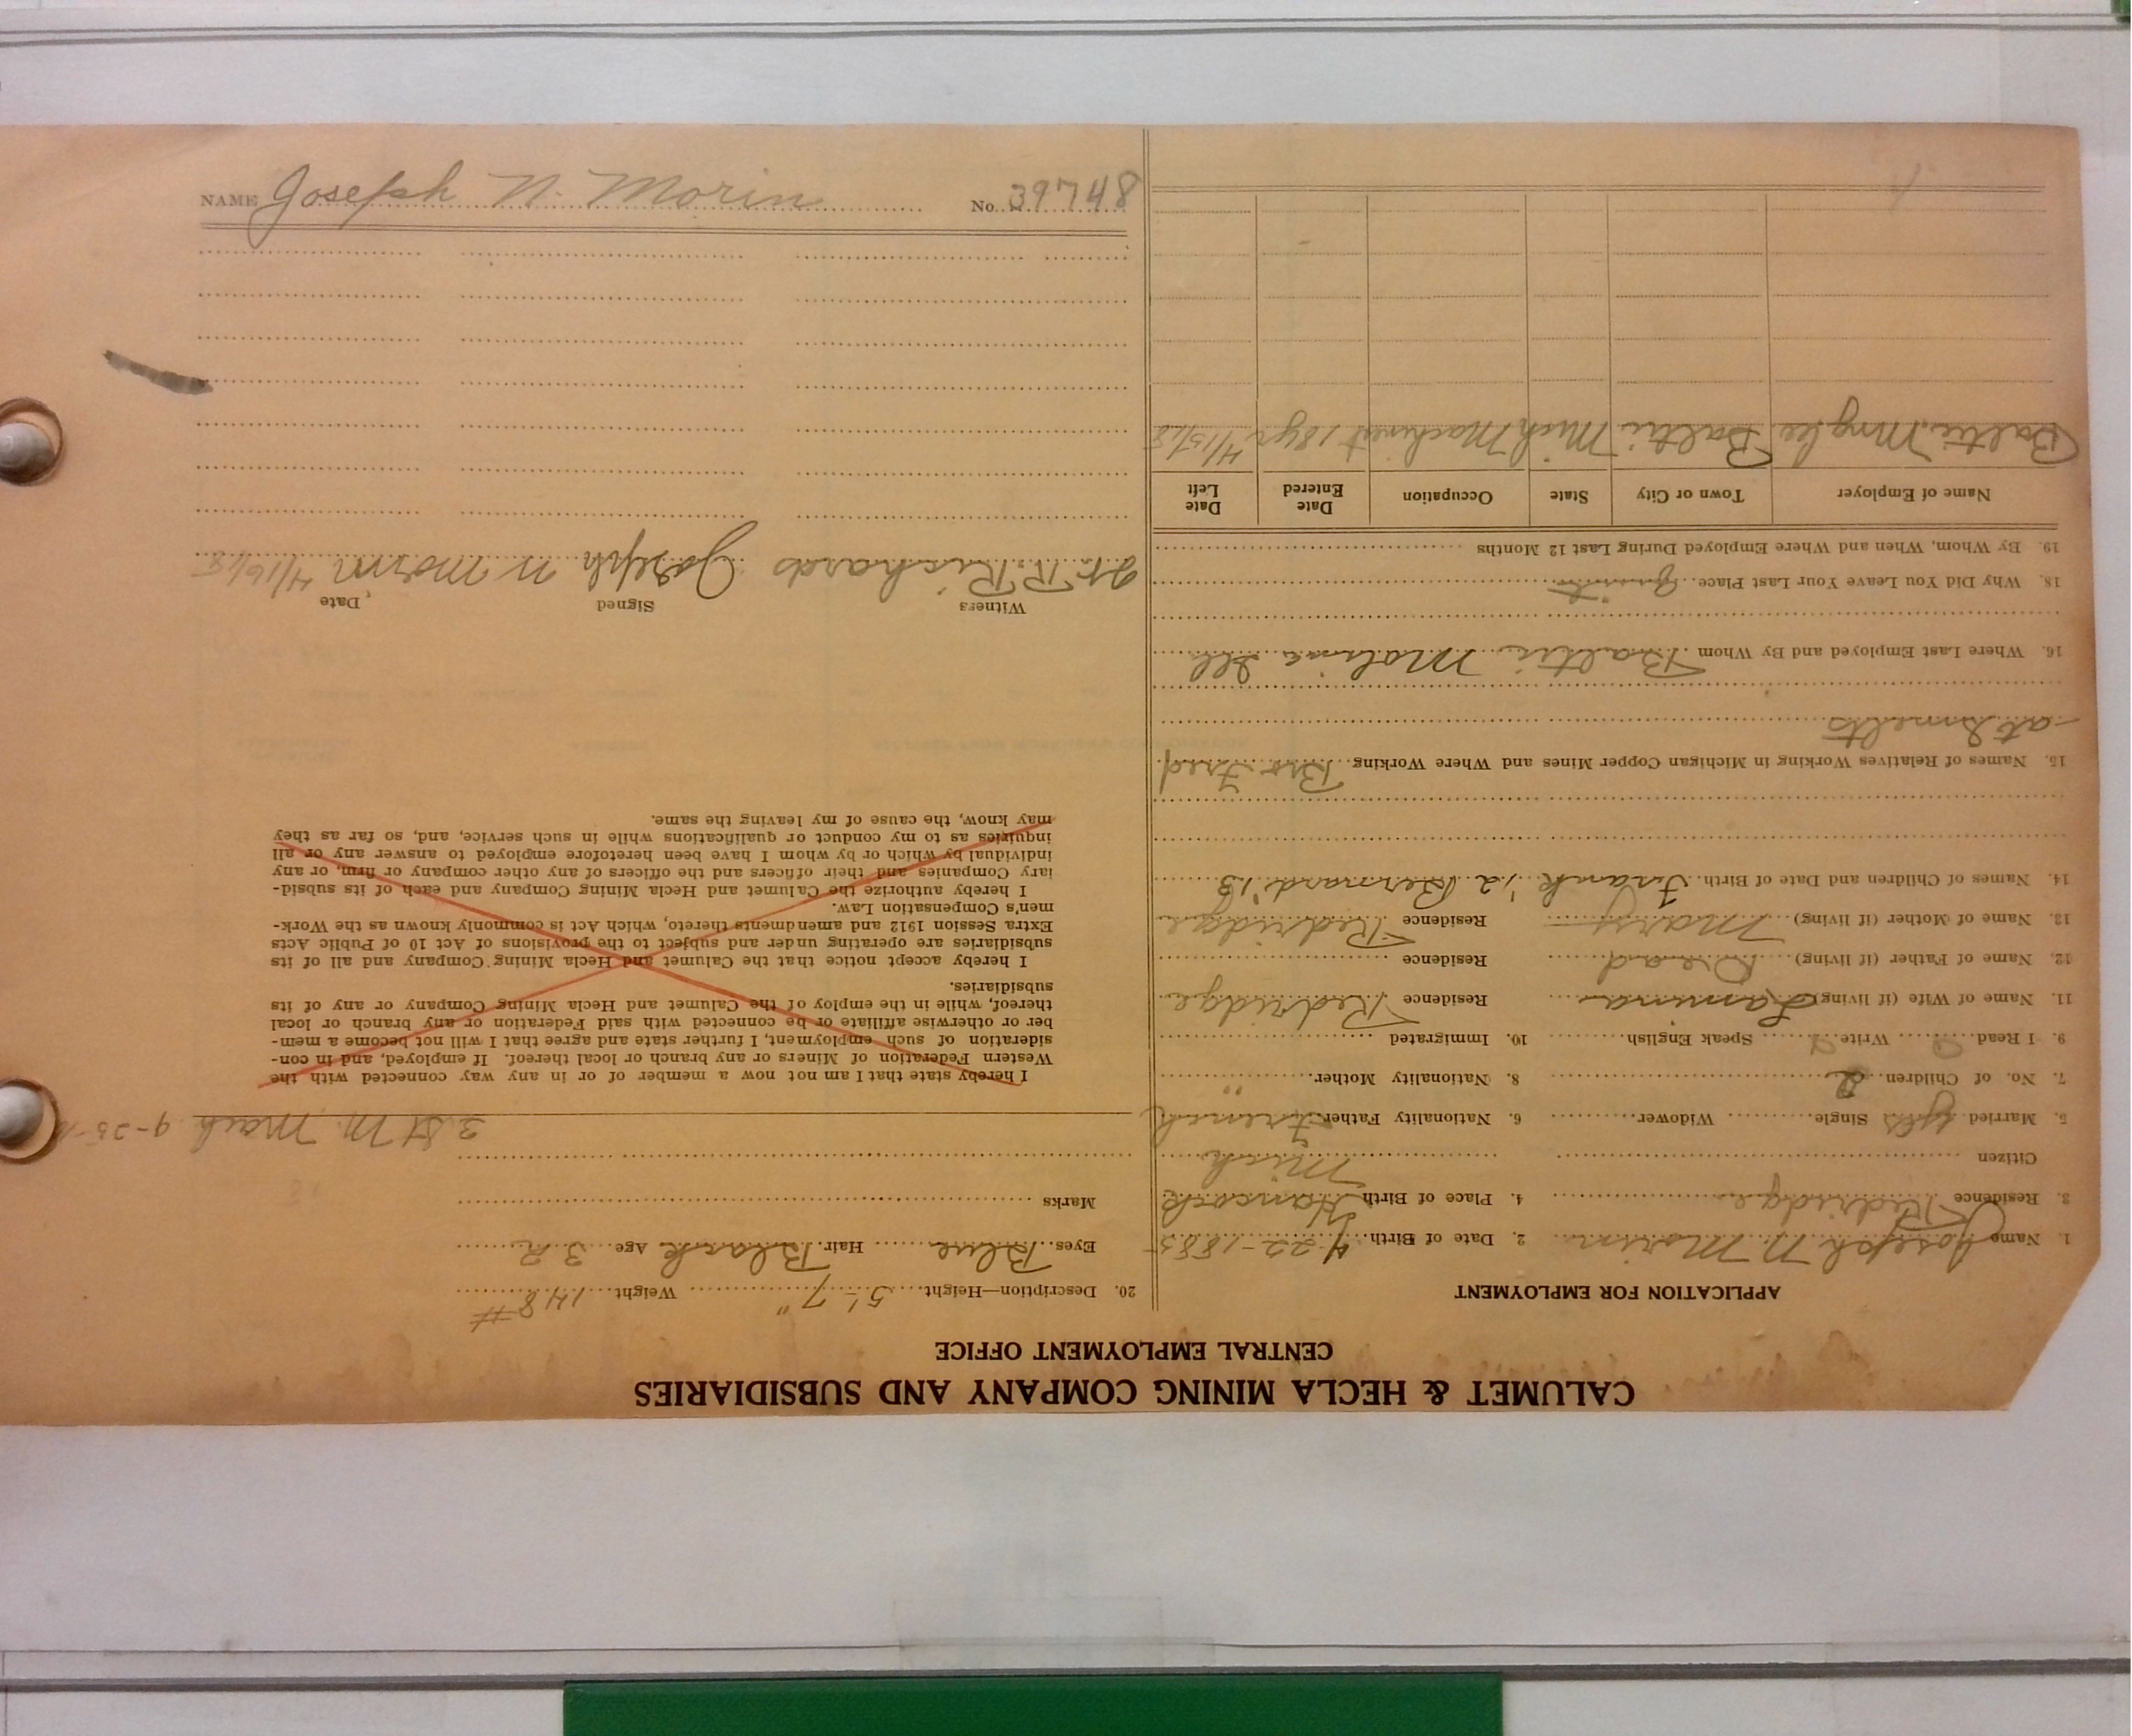 CALUMET & HECLA MINING COMPANY AND SUBSIDIARIES
CENTRAL EMPLOYMENT OFFICE
APPLICATION FOR EMPLOYMENT
1. Name Joseph N Morin 2. Date of Birth 4-22-1885
3. Residence Redridge 4. Place of Birth Hancock
Citizen Mich
5. Married yes Single Widower 6. Nationality Father French
7. No. of Children 2 8. Nationality Mother "
9. I Read Write Speak English 10. Immigrated
11. Name of Wife (if living) Residence Redridge
12. Name of Father (if living) Dead Residence
13. Name of Mother (if living) Mary Residence Redridge
14. Names of Children and Date of Birth Frank '12 Bernard '13
15. Names of Relatives Working in Michigan Copper Mines and Where Working Bro Fred
at Smelts
16. Where Last Employed and By Whom Baltic Moline Ill
18. Why Did You Leave Your Last Place quit
19. By Whom, When and Where Employed During Last 12 Months
Name of Employer Town or City State Occupation Date Entered Date Left
Baltic Mng Baltic Mich Machinist 18 yr 4/15/18
20. Description—Height 5'-7" Weight 148#
Eyes Blue Hair Black Age 32
Marks
3. St M. Mach 9-25-
I hereby state that I am not now a member of or in any way connected with the
Western Federation of Miners or any branch or local thereof. If employed, and in con-
sideration of such employment, I further state and agree that I will not become a mem-
ber or otherwise affiliate or be connected with said Federation or any branch or local
thereof, while in the employ of the Calumet and Hecla Mining Company or any of its
subsidiaries.
I hereby accept notice that the Calumet and Hecla Mining Company and all of its
subsidiaries are operating under and subject to the provisions of Act 10 of Public Acts
Extra Session 1912 and amendments thereto, which Act is commonly known as the Work-
men's Compensation Law.
I hereby authorize the Calumet and Hecla Mining Company and each of its subsid-
iary Companies and their officers and the officers of any other company or firm, or any
individual by which or by whom I have been heretofore employed to answer any or all
inquiries as to my conduct or qualifications while in such service, and, so far as they
may know, the cause of my leaving the same.
Witness Signed Date
R. Richards Joseph N Morin 4/16/18
NAME Joseph N. Morin No. 39748